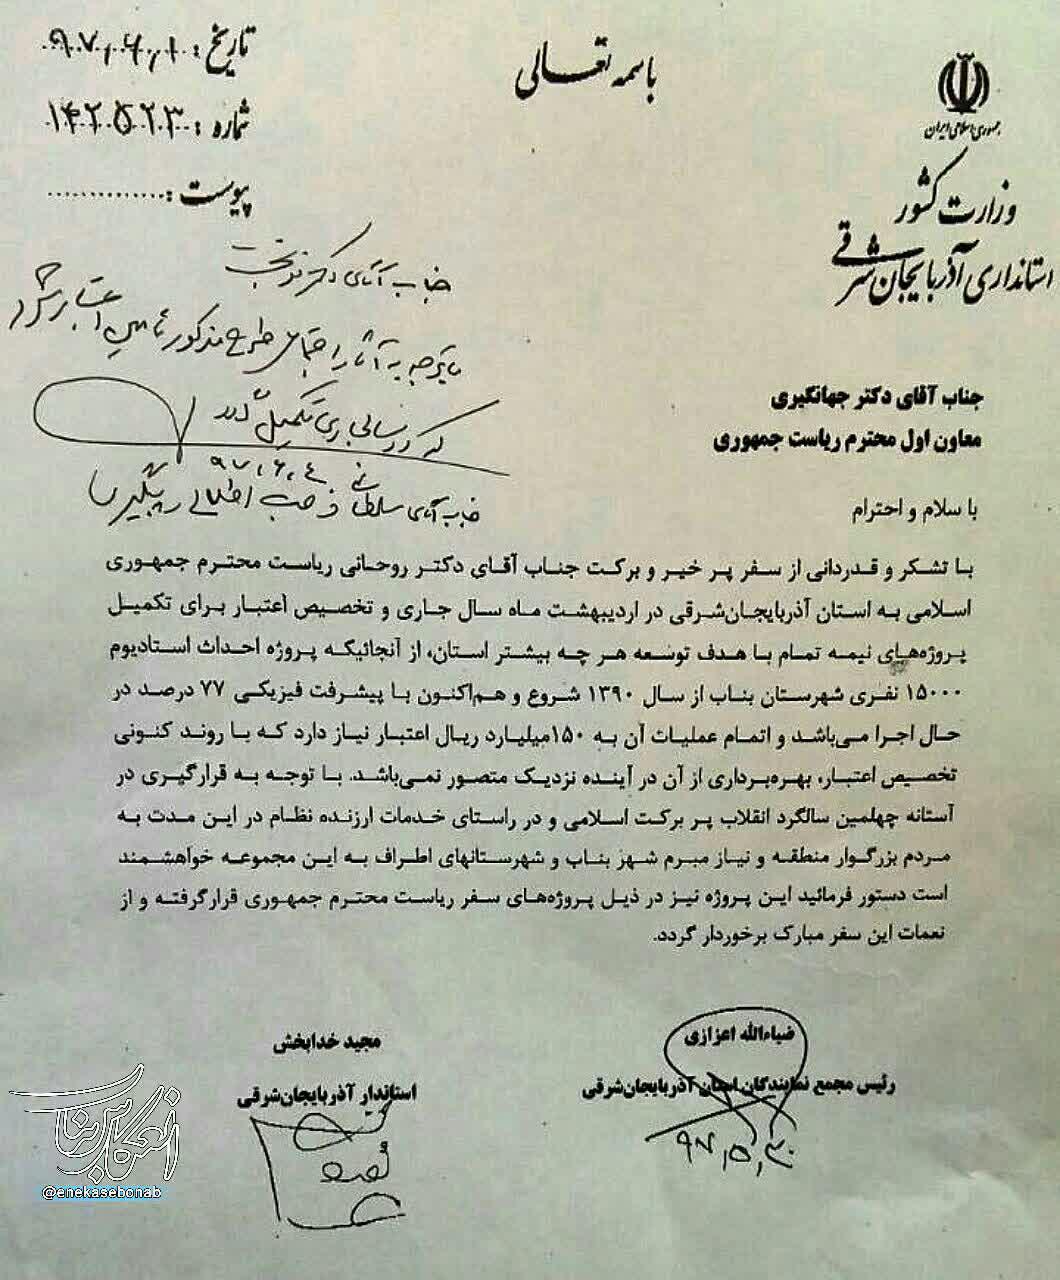 باسمه تعالی
جمهوری اسلامی ایران
وزارت کشور
استانداری آذربایجان شرقی
تاریخ: ۹۷,۶,۱
شماره: ۱۴۲۵۲۳
پیوست:..............
جناب آقای دکتر نوبخت
با توجه به آثار اجتماعی طرح مذکور تامین اعتبار شود
که در سالجاری تکمیل گردد
۹۷,۶,۴
جناب آقای سلطانی
جناب آقای دکتر جهانگیری
معاون اول محترم ریاست جمهوری
با سلام و احترام
با تشکر و قدردانی از سفر پر خیر و برکت جناب آقای دکتر روحانی ریاست محترم جمهوری
اسلامی به استان آذربایجان‌شرقی در اردیبهشت ماه سال جاری و تخصیص اعتبار برای تکمیل
پروژه‌های نیمه تمام با هدف توسعه هر چه بیشتر استان، از آنجائیکه پروژه احداث استادیوم
۱۵۰۰۰ نفری شهرستان بناب از سال ۱۳۹۰ شروع و هم‌اکنون با پیشرفت فیزیکی ۷۷ درصد در
حال اجرا می‌باشد و اتمام عملیات آن به ۱۵۰میلیارد ریال اعتبار نیاز دارد که با روند کنونی
تخصیص اعتبار، بهره‌برداری از آن در آینده نزدیک متصور نمی‌باشد. با توجه به قرارگیری در
آستانه چهلمین سالگرد انقلاب پر برکت اسلامی و در راستای خدمات ارزنده نظام در این مدت به
مردم بزرگوار منطقه و نیاز مبرم شهر بناب و شهرستانهای اطراف به این مجموعه خواهشمند
است دستور فرمائید این پروژه نیز در ذیل پروژه‌های سفر ریاست محترم جمهوری قرارگرفته و از
نعمات این سفر مبارک برخوردار گردد.
ضیاءالله اعزازی
رئیس مجمع نمایندگان استان آذربایجان‌شرقی
۹۷,۵,۳۰
مجید خدابخش
استاندار آذربایجان‌شرقی
انعکاس بناب
@enekasebonab